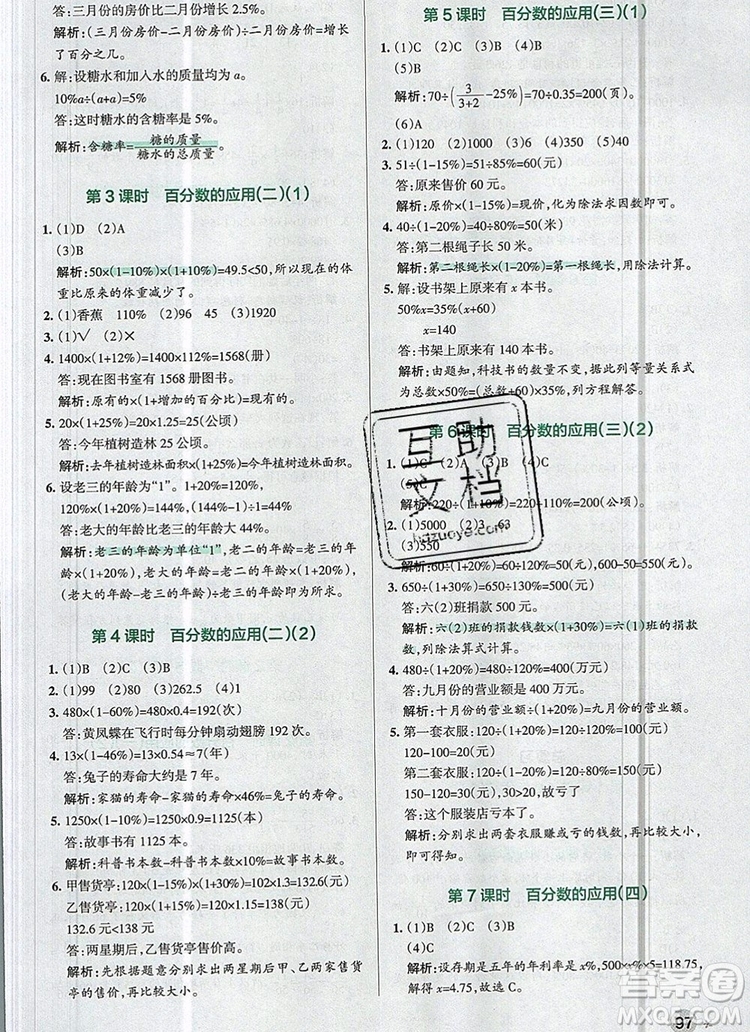 答:三月份的房价比二月份增长2.5%。
解析:(三月份房价-二月份房价)÷二月份房价=增长了百分之几。
6. 解:设糖水和加入水的质量均为a。
10%a÷(a+a)=5%
答:这时糖水的含糖率是5%。
解析:含糖率=糖的质量/糖水的总质量。
第3课时 百分数的应用(二)(1)
1. (1)D (2)A
(3)B
解析:50×(1-10%)×(1+10%)=49.5<50,所以现在的体
重比原来的体重减少了。
2. (1)香蕉 110% (2)96 45 (3)1920
3. (1)√ (2)×
4. 1400×(1+12%)=1568(册)
答:现在图书室有1568册图书。
解析:原有的×(1+增加的百分比)=现有的。
5. 20×(1+25%)=20×1.25=25(公顷)
答:今年植树造林25公顷。
解析:去年植树造林面积×(1+25%)=今年植树造林面积。
6. 设老三的年龄为“1”。1×(1+20%)=120%,
120%×(1+20%)=144%,(144%-1)÷1=44%。
答:老大的年龄比老三的年龄大44%。
解析:老三的年龄为单位“1”,老二的年龄=老三的年龄×
(1+20%),老大的年龄=老二的年龄×(1+20%),然后求出
(老大的年龄-老三的年龄)÷老三的年龄即为所求。
第4课时 百分数的应用(二)(2)
1. (1)B (2)B (3)B
2. (1)99 (2)80 (3)262.5 (4)1
3. 480×(1-60%)=480×0.4=192(次)
答:黄凤蝶在飞行时每分钟扇动翅膀192次。
4. 13×(1-46%)=13×0.54≈7(年)
答:兔子的寿命大约是7年。
解析:家猫的寿命-家猫的寿命×46%=兔子的寿命。
5. 1250×(1-10%)=1250×0.9=1125(本)
答:故事书有1125本。
解析:科普书本数-科普书本数×10%=故事书本数。
6. 甲售货亭:120×(1-15%)×(1+30%)=102×1.3=132.6(元)
乙售货亭:120×(1+15%)=120×1.15=138(元)
132.6元<138元
答:两星期后,乙售货亭售价高。
解析:先根据题意分别求出两星期后甲、乙两个售货亭
的售价是多少元,再比较大小。
第5课时 百分数的应用(三)(1)
1. (1)C (2)C (3)D (4)B
(5)B
解析:70÷(3/3+2-25%)=70÷0.35=200(页)。
(6)A
2. (1)120 (2)1000 (3)35 6
3. 51÷(1-15%)=60(元)
答:原来售价60元。
解析:原价×(1-15%)=现价,化为除法求因数即可。
4. 40÷(1-20%)=40÷80%=50(米)
答:第二根绳子长50米。
解析:第二根绳长×(1-20%)=第一根绳长,用除法计算。
5. 解:设书架上原来有x本书。
50%x=35%(x+60)
x=140
答:书架上原来有140本书。
解析:由题知,科技书的数量不变,据此列等量关系式
为总数×50%=(总数+60)×35%,列方程解答。
第6课时 百分数的应用(三)(2)
1. (1)C (2)A (3)B (4)C
(5)C
解析:220÷(1+10%)=220÷110%=200(公顷)。
2. (1)5000 (2)3 63
(3)550
解析:60÷(1+20%)=50(元),600-50=550(元)。
3. 650÷(1+30%)=650÷130%=500(元)
答:六(2)班捐款500元。
解析:六(2)班的捐款钱数×(1+30%)=六(1)班的捐款
数,列除法算式计算。
4. 480÷(1+20%)=480÷120%=400(万元)
答:九月份的营业额是400万元。
解析:十月份的营业额÷(1+20%)=九月份的营业额。
5. 第一套衣服:120÷(1+20%)=120÷120%=100(元)
120-100=20(元)
第二套衣服:120÷(1-20%)=120÷80%=150(元)
150-120=30(元),30>20,故亏了
答:这个服装店亏本了。
解析:分别求出两套衣服赚或亏的钱数,再比较大小,
即可得知。
第7课时 百分数的应用(四)
1. (1)B (2)C (3)B
(4)C
解析:设存期是五年的年利率是x%,500×x%×5=118.75,
解得x=4.75,故选C。
97
互助
文档
hdzuoye.com
答案圈
MXQE.COM